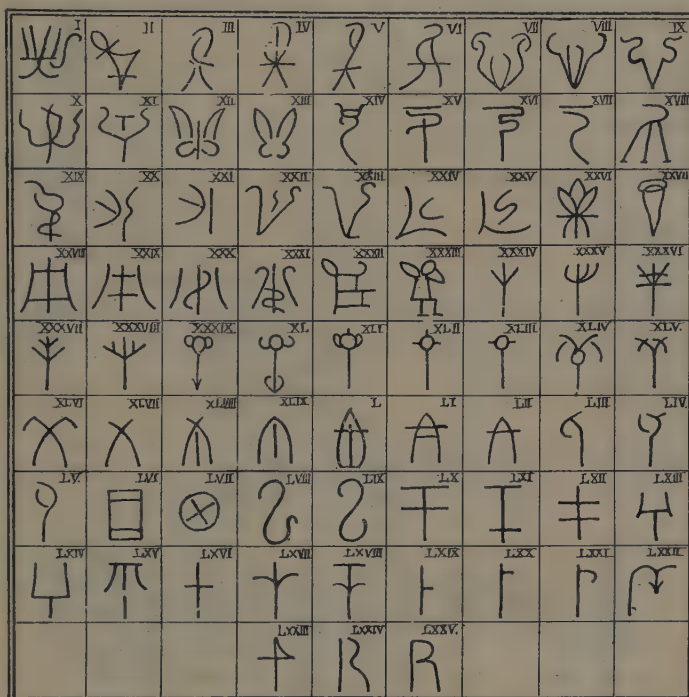 I II III IV V VI VII VIII IX
X XI XII XIII XIV XV XVI XVII XVIII
XIX XX XXI XXII XXIII XXIV XXV XXVI XXVII
XXVIII XXIX XXX XXXI XXXII XXXIII XXXIV XXXV XXXVI
XXXVII XXXVIII XXXIX XL XLI XLII XLIII XLIV XLV.
XLVI XLVII XLVIII XLIX L LI LII LIII LIV
LV. LVI LVII LVIII LIX LX LXI LXII LXIII
LXIV LXV LXVI LXVII LXVIII LXIX LXX LXXI LXXII
LXXIII LXXIV LXXV.